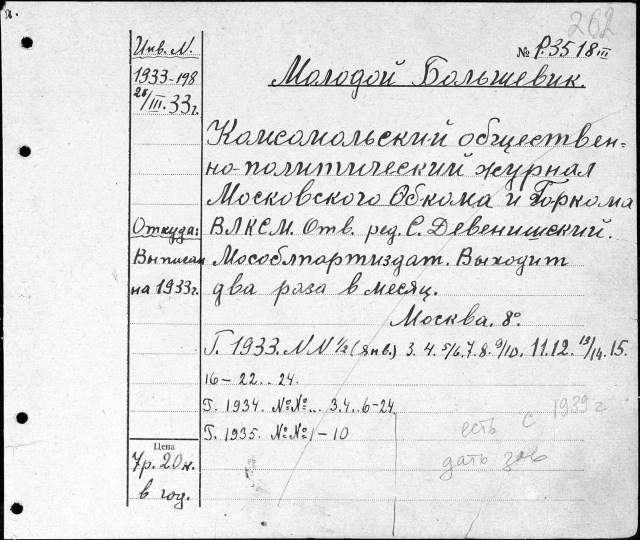 262
№ Р.3518 III
Инв. N.
1933-198
28/III.33г.
Молодой Большевик.
Комсомольский обществен=
но-политический журнал
Московского Обкома и Горкома
Откуда:
ВЛКСМ. Отв. ред. С. Девенишский.
Выписан
на 1933г.
Мособлпартиздат. Выходит
два раза в месяц.
Москва. 8°
Г. 1933. NN 1/2 (янв.) 3. 4. 5/6. 7. 8. 9/10. 11. 12. 13/14. 15.
16 – 22 . . 24.
Г. 1934. №№... 3. 4. . 6-24
Г. 1935. №№ 1 – 10
есть с 1939 г
дать
Цена
7р. 20к.
в год.